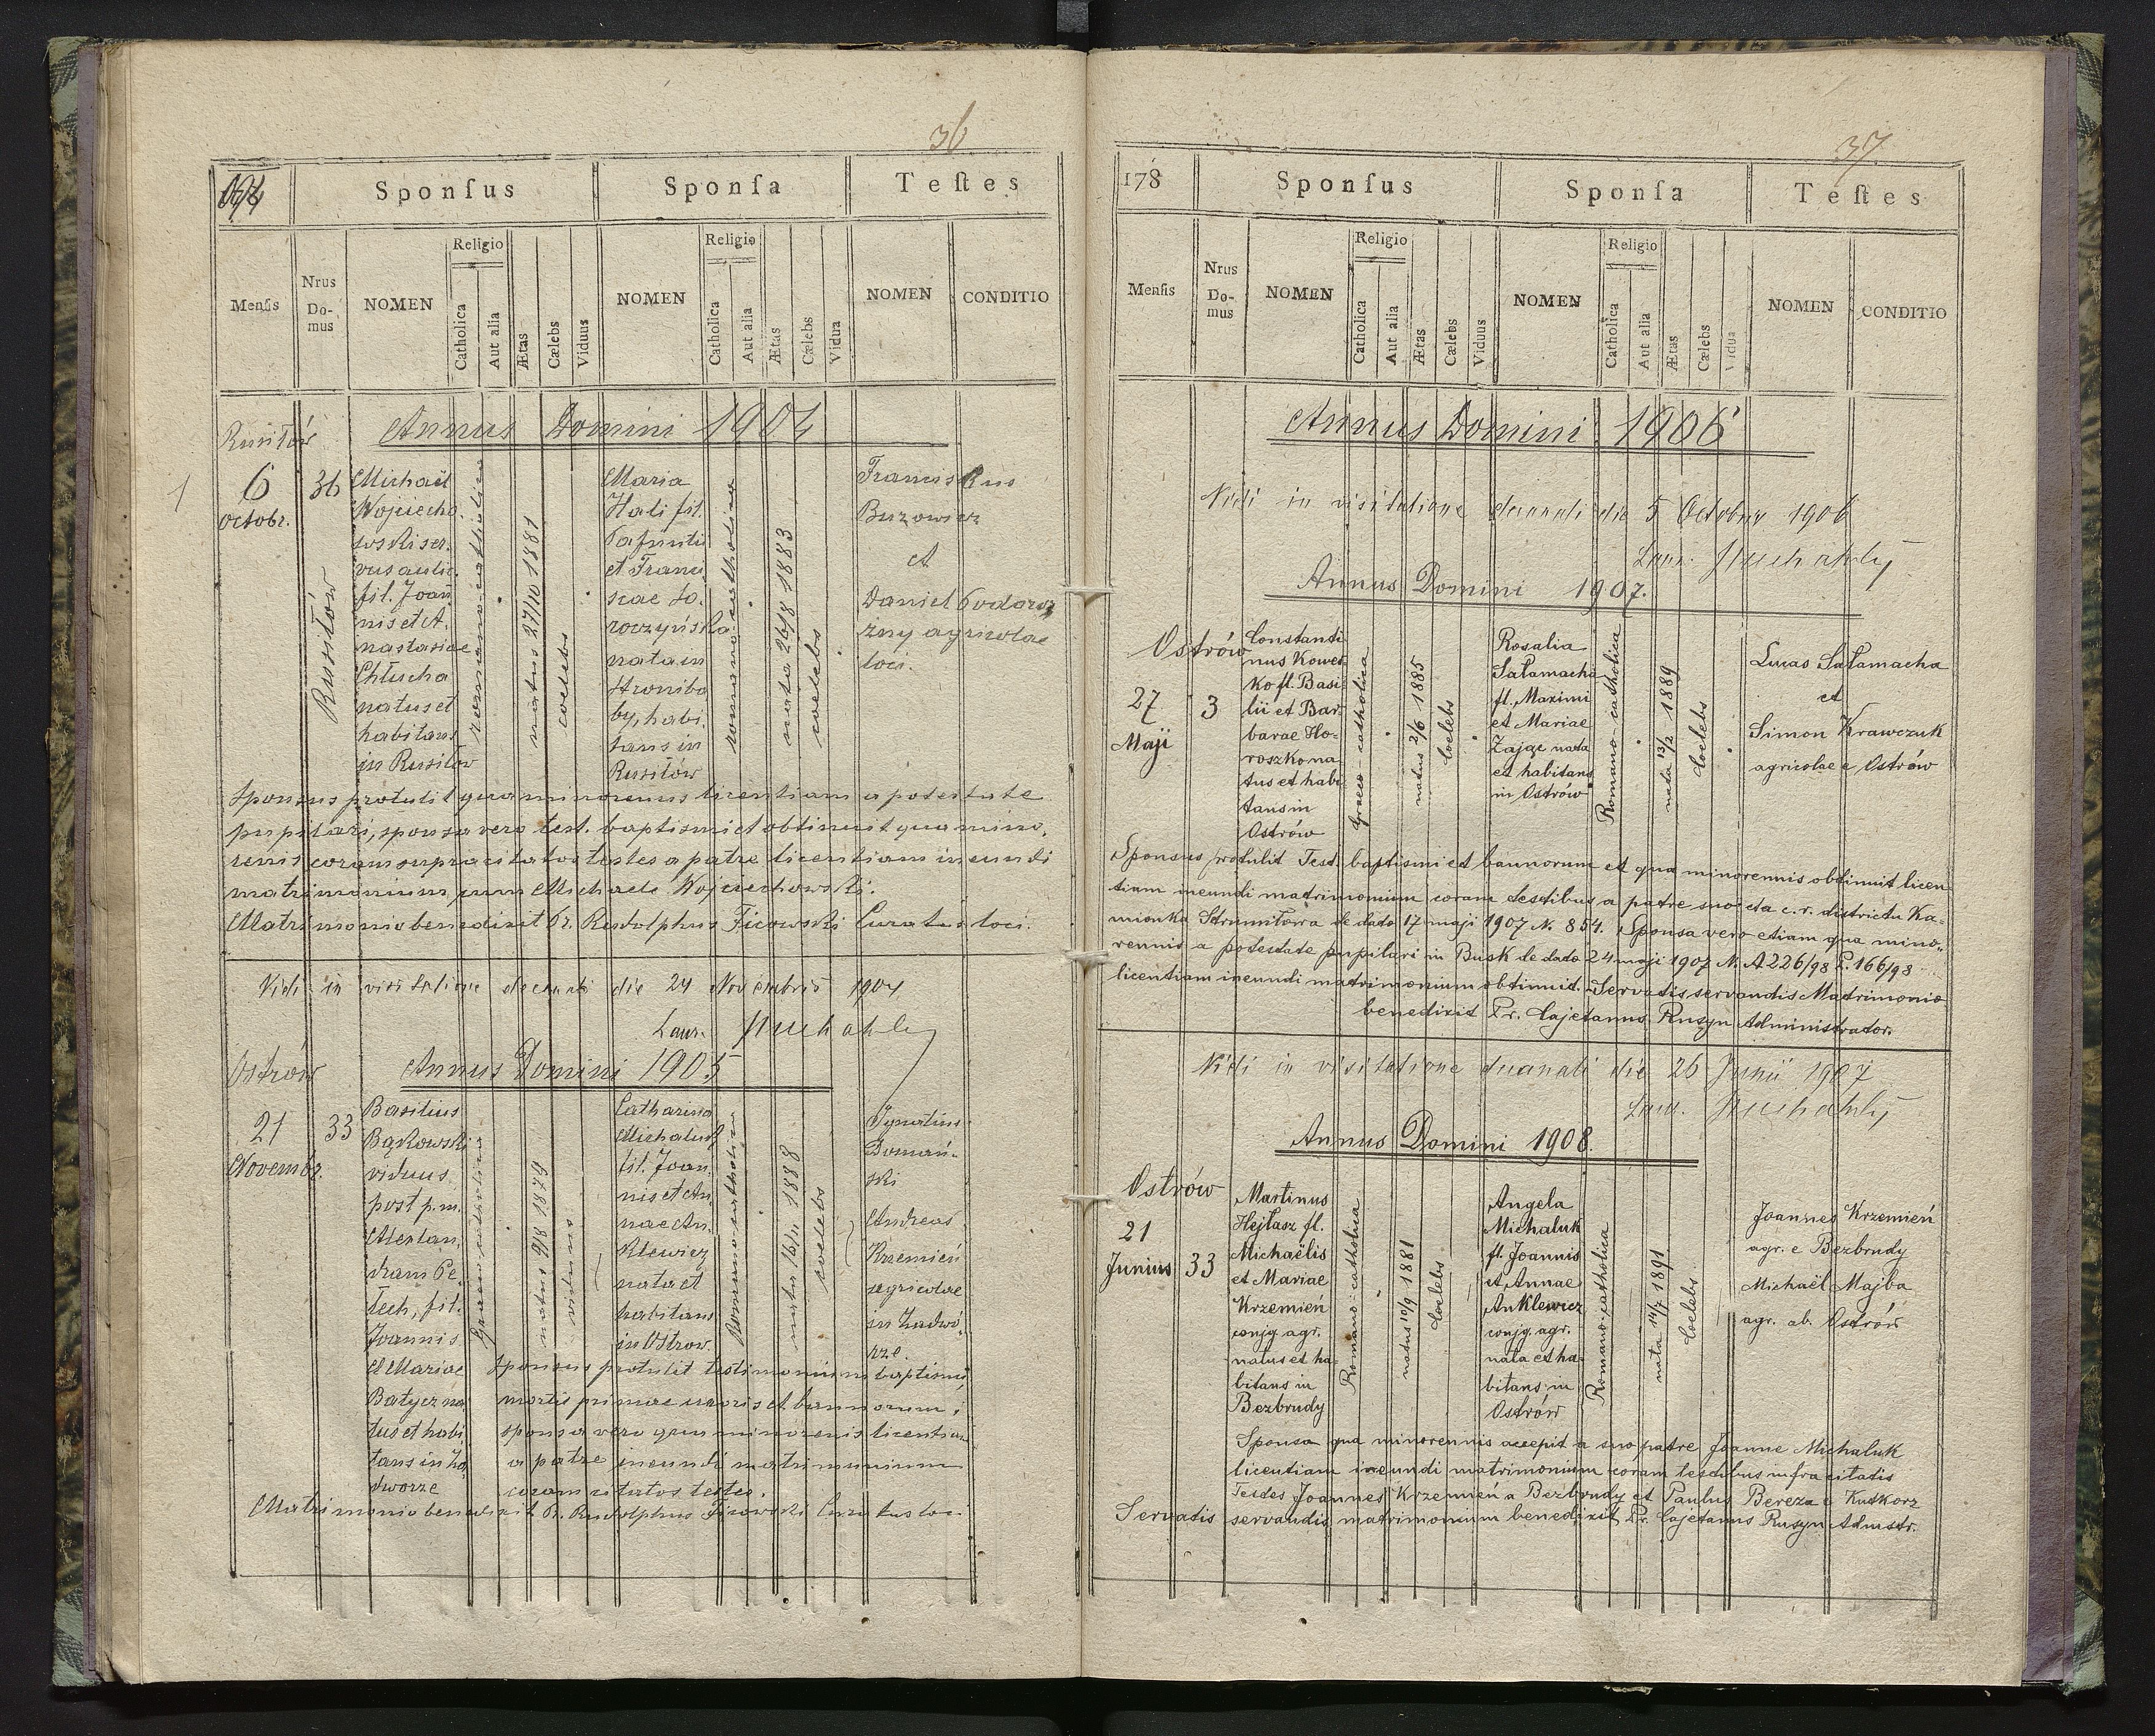 36
Sponſus Sponſa Teſtes
Menſis Nrus Do-mus NOMEN Religio Catholica Aut alia Ætas Cælebs Viduus NOMEN Religio Catholica Aut alia Ætas Cælebs Vidua NOMEN CONDITIO
Rusiłów
Annus Domini 1904
1
6
Octobr.
36
Rusiłów
Michaël
Wojciecho
wski ser.
vus aulic.
fil. Joan
nis et A.
nastasiae
Chłucha
natus et
habitans
in Rusiłów
romano-catholica
natus 27/10 1881
coelebs
Maria
Hali fil.
Pafnutii
et Franci
scae So.
roczyńska
nata in
Stroniba
by, habi.
tans in
Rusiłów
romano catholica
nata 26/8 1883
coelebs
Franciskus
Buzowicz
et
Daniel Podowsz
żny agricolae
loci.
Sponsus protulit qua minorennis licentiam a potestate
pupilari, sponsa vero test. baptismi et obtinuit qua mino.
rennis coram supracitatos testes a patre licentiam ineundi
matrimonium cum Michaele Wojciechowski.
Matrimonio benedixit Pr. Rudolphus Ficowski Curatus loci.
Vidi in visitatione decanali die 24 Novembris 1904
Laur.
Ostrów
Annus Domini 1905
21
Novembr.
33
Basilius
Bąkowski
viduus
post p.m.
Alexan.
dram Pe.
tech, fil.
Joannis
et Mariae
Batycz na
tus et habi
tans in Za
dworze
Graeco catholica
natus 9/8 1879
viduus
Catharina
Michaluk
fil. Joan.
nis et An.
nae An.
klewicz
nata et
habitans
in Ostrow.
Romano catholica
nata 16/11 1888
coelebs
Ignatius
Domań-
ski
Andreas
Krzemień
agricolae
in Zadwó.
rze.
Sponsus protulit testimonium baptismi,
mortis primae uxoris et bannorum;
sponsa vero qua minorenis licentiam
a patre ineundi matrimonium
coram citatos testes.
Matrimonio benedixit Pr. Rudolphus Ficowski Curatus loci
37
178 Sponſus Sponſa Teſtes
Menſis Nrus Do-mus NOMEN Religio Catholica Aut alia Ætas Cælebs Viduus NOMEN Religio Catholica Aut alia Ætas Cælebs Vidua NOMEN CONDITIO
Annus Domini 1906
Vidi in visitatione decanali die 5 Octobris 1906
Laur.
Annus Domini 1907.
Ostrów
27
Maji
3
Constanti
nus Kower
ko fl. Basi
lii et Bar
barae Ho-
roszko na
tus et habi
tans in
Ostrów
Graeco-catholica
natus 2/6 1885
Coelebs
Rosalia
Sałamacha
fl. Maximi
et Mariae
Zając nata
et habitans
in Ostrów
Romano-catholica
nata 13/2 1889
Coelebs
Lucas Sałamacha
et
Simon Krawczuk
agricolae e Ostrów
Sponsus protulit Test. baptismi et bannorum et qua minorennis obtinuit licen
tiam ineundi matrimonium coram testibus a patre suo cta c. r. districtu Ka-
mionka Strumiłowa de dato 17 maji 1907 N. 854. Sponsa vero etiam qua mino-
rennis a potestate pupilari in Busk de dato 24 maji 1907 N. A 226/98 P. 166/98
licentiam ineundi matrimonium obtinuit. Servatis servandis Matrimonio
benedixit Pr. Cajetanus Rusyn Administrator.
Vidi in visitatione decanali die 26 Junii 1907
Laur.
Annus Domini 1908.
Ostrów
21
Junius
33
Martinus
Hejłasz fl.
Michaëlis
et Mariae
Krzemień
conjg. agr.
natus et ha-
bitans in
Bezbrudy
Romano-catholica
natus 10/9 1881
Coelebs
Angela
Michaluk
fl. Joannis
et Annae
Anklewicz
conjg. agr.
nata et ha-
bitans in
Ostrów
Romano-catholica
nata 14/7 1891
Coelebs
Joannes Krzemień
agr. e Bezbrudy
Michaël Majba
agr. ab. Ostrów
Sponsa qua minorennis accepit a suo patre Joanne Michaluk
licentiam ineundi matrimonium coram testibus infra citatis
Testes Joannes Krzemień a Bezbrudy et Paulus Bereza e Kutkorz
Servatis servandis matrimonium benedixit Pr. Cajetanus Rusyn Admstr.